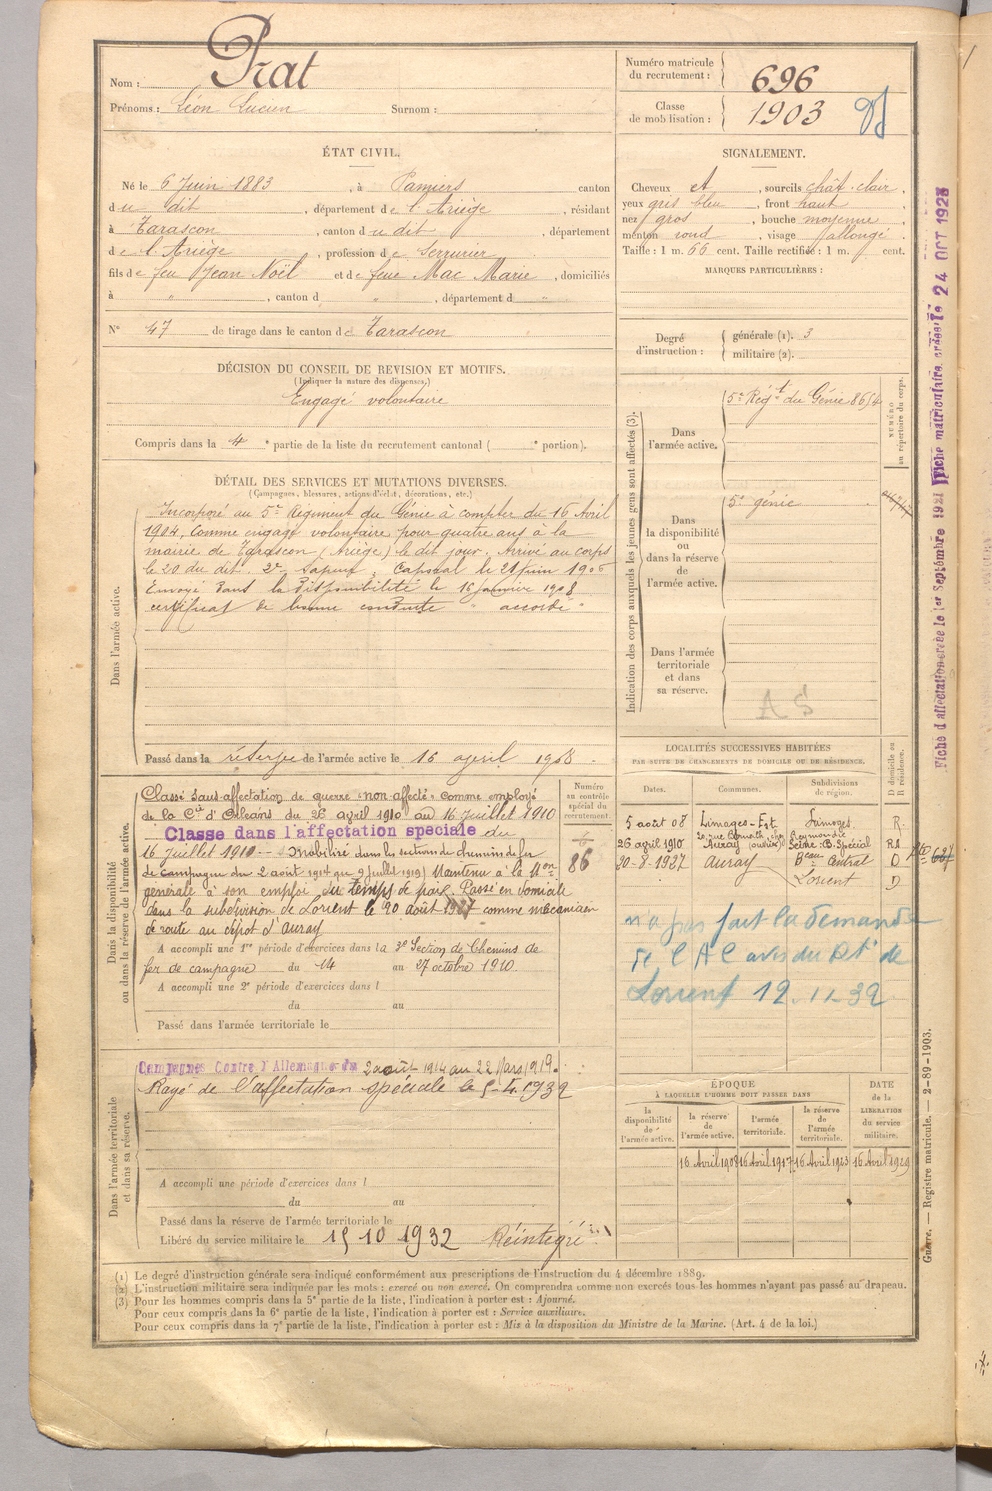 Nom : Prat
Prénoms : Léon Lucien Surnom :
Numéro matricule du recrutement : 696
Classe de mobilisation : 1903
ÉTAT CIVIL.
Né le 6 Juin 1883, à Pamiers canton
du dit, département de l'Ariège, résidant
à Tarascon, canton du dit, département
de l'Ariège, profession de Serrurier
fils de feu Jean Noël et de feue Mac Marie, domiciliés
à " , canton d " , département d "
N° 47 de tirage dans le canton de Tarascon
SIGNALEMENT.
Cheveux et, sourcils chât. clair,
yeux gris bleu, front haut
nez gros, bouche moyenne
menton rond, visage allongé.
Taille : 1 m. 66 cent. Taille rectifiée : 1 m. cent.
MARQUES PARTICULIÈRES :
Degré d'instruction : générale (1). 3
militaire (2).
DÉCISION DU CONSEIL DE REVISION ET MOTIFS.
(Indiquer la nature des dispenses.)
Engagé volontaire
Compris dans la 4e partie de la liste du recrutement cantonal ( e portion).
DÉTAIL DES SERVICES ET MUTATIONS DIVERSES.
(Campagnes, blessures, actions d'éclat, décorations, etc.)
Dans l'armée active.
Incorporé au 5e Régiment du Génie à compter du 16 Avril
1904, comme engagé volontaire pour quatre ans à la
mairie de Tarascon (Ariège) le dit jour. Arrivé au corps
le 20 du dit. 2e Sapeur. Caporal le 21 Juin 1906
Envoyé dans la disponibilité le 16 Janvier 1908
certificat de bonne conduite " accordé "
Passé dans la réserve de l'armée active le 16 avril 1908.
Indication des corps auxquels les jeunes gens sont affectés (3).
NUMÉRO au répertoire du corps.
Dans l'armée active.
5e Régt du Génie 8654
Dans la disponibilité ou dans la réserve de l'armée active.
5e génie
Dans l'armée territoriale et dans sa réserve.
A S
Dans la disponibilité ou dans la réserve de l'armée active.
Numéro au contrôle spécial du recrutement
86
Classé sans-affectation de guerre "non-affecté" comme employé
de la Cie d'Orléans du 26 avril 1910 au 16 juillet 1910
Classé dans l'affectation spéciale du
16 Juillet 1910 - Mobilisé dans les sections de chemin de fer
de campagne du 2 août 1914 au 9 Juillet 1919. Maintenu à la Mon
générale à son emploi du temps de paix. Passé en domicile
dans la subdivision de Lorient le 20 août 1927 comme mécanicien
de route au dépôt d'Auray
A accompli une 1re période d'exercices dans la 3e Section de Chemins de
fer de campagne du 14 au 27 octobre 1910.
A accompli une 2e période d'exercices dans l
du au
Passé dans l'armée territoriale le
LOCALITÉS SUCCESSIVES HABITÉES
PAR SUITE DE CHANGEMENTS DE DOMICILE OU DE RÉSIDENCE.
Dates. Communes. Subdivisions de région. D domicile ou R résidence.
5 août 08 Limoges Limoges R.
26 avril 1910 Auray Seine
20-8-1927 Auray Lorient D
n'a pas fait la demande
de l'AC
Lorient 12.11.32
Dans l'armée territoriale et dans sa réserve.
Campagnes Contre l'Allemagne du 2 août 1914 au 22 Mars 1919.
Rayé de l'affectation spéciale le 5-4-1932
A accompli une période d'exercices dans l
du au
Passé dans la réserve de l'armée territoriale le
Libéré du service militaire le 15 10 1932 Réintégré
ÉPOQUE
À LAQUELLE L'HOMME DOIT PASSER DANS
la disponibilité de l'armée active. la réserve de l'armée active. l'armée territoriale. la réserve de l'armée territoriale. DATE de la LIBÉRATION du service militaire.
16 Avril 1908 16 Avril 1917 16 Avril 1923 16 Avril 1929
(1) Le degré d'instruction générale sera indiqué conformément aux prescriptions de l'instruction du 4 décembre 1889.
(2) L'instruction militaire sera indiquée par les mots : exercé ou non exercé. On comprendra comme non exercés tous les hommes n'ayant pas passé au drapeau.
(3) Pour les hommes compris dans la 5e partie de la liste, l'indication à porter est : Ajourné.
Pour ceux compris dans la 6e partie de la liste, l'indication à porter est : Service auxiliaire.
Pour ceux compris dans la 7e partie de la liste, l'indication à porter est : Mis à la disposition du Ministre de la Marine. (Art. 4 de la loi.)
Fiche d'affectation créée le 1er Septembre 1921 Fiche matriculaire créée le 24 OCT 1928
Guerre. — Registre matricule. — 2-89-1903.